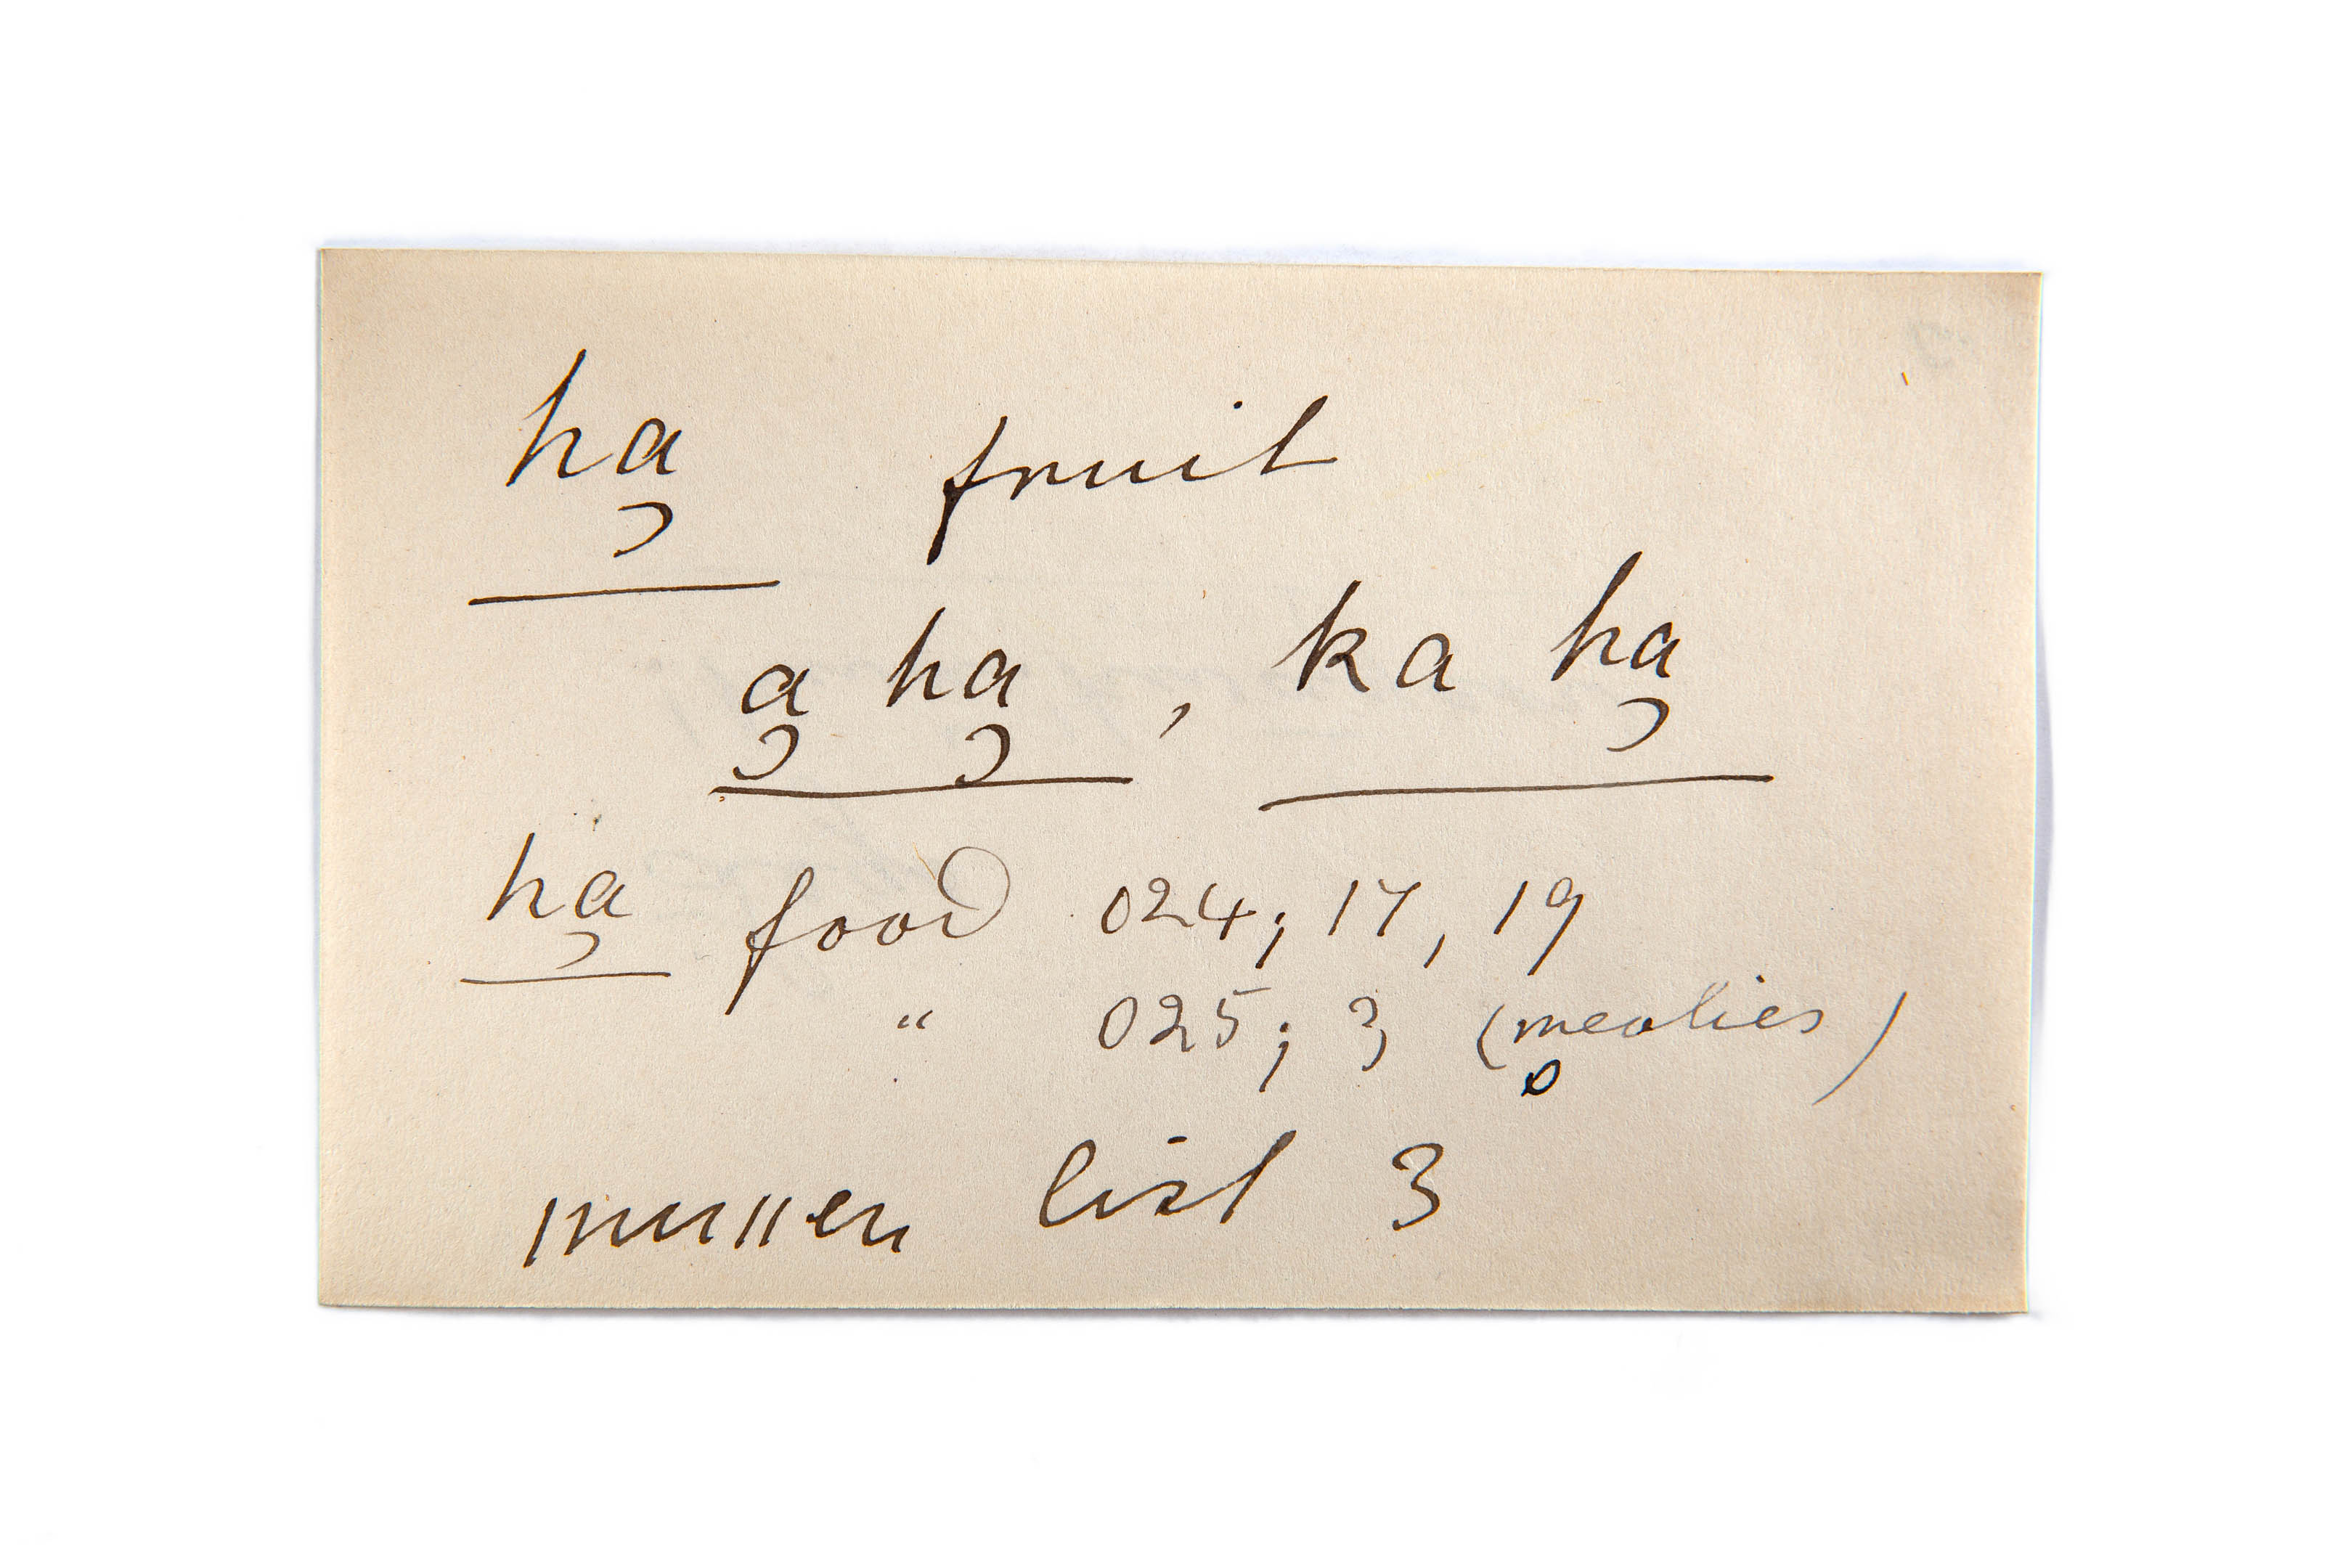 ha̡ fruit
a̡ ha̡ , ka ha̡
ha̡ food 024; 17, 19
" 025; 3 (mealies)
list 3